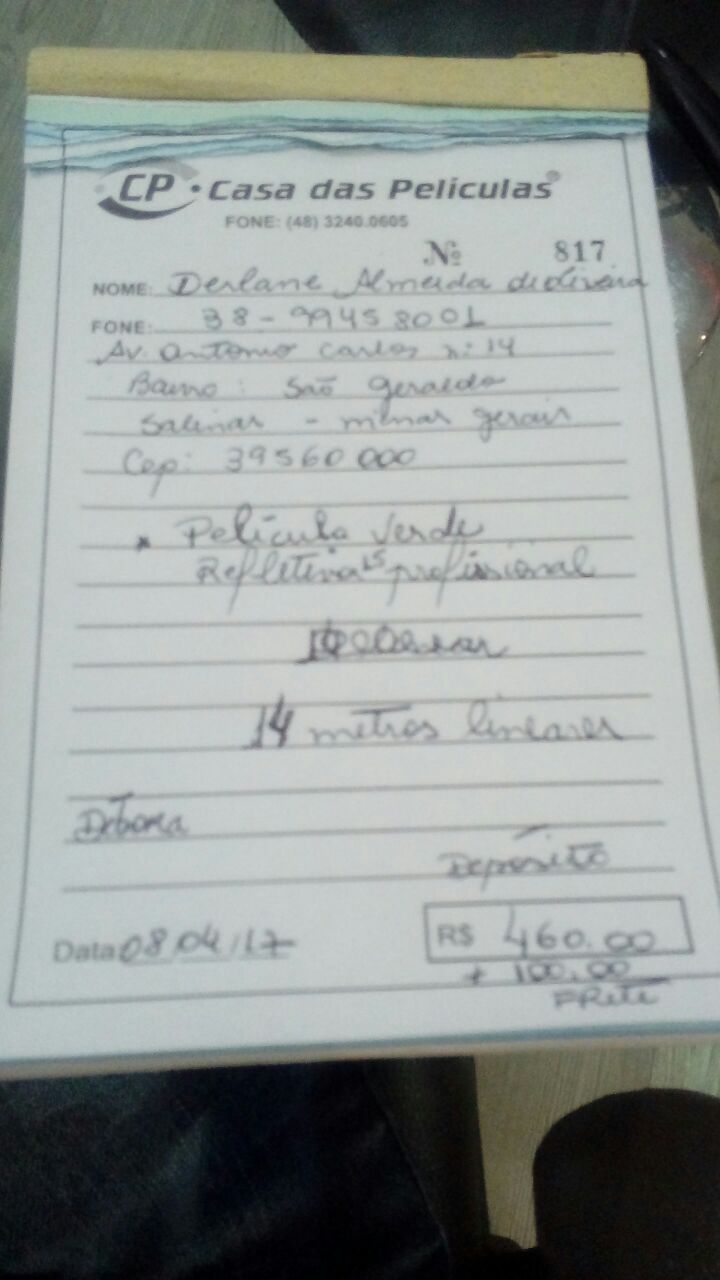 CP • Casa das Películas®
FONE: (48) 3240.0605
Nº 817
NOME: Derlane Almeida de Oliveira
FONE: 38-99458001
Av. Antonio Carlos nº 14
Bairro: São Geraldo
Salinas - minas gerais
Cep: 39560000
* Película Verde
Refletiva 15 profissional
14 metros lineares
Debora
Depósito
Data 08/04/17
R$ 460.00
+ 100.00
FRete